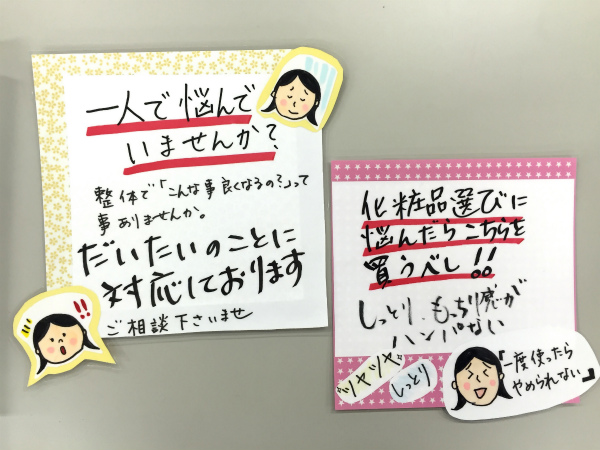 一人で悩んで
いませんか?
整体で「こんな事良くなるの?」って
事ありませんか。
だいたいのことに
対応しております
ご相談下さいませ
!!
化粧品選びに
悩んだらこちらを
買うべし!!
しっとり、もっちり感が
ハンパない
ツヤツヤ
しっとり
『一度使ったら
やめられない』